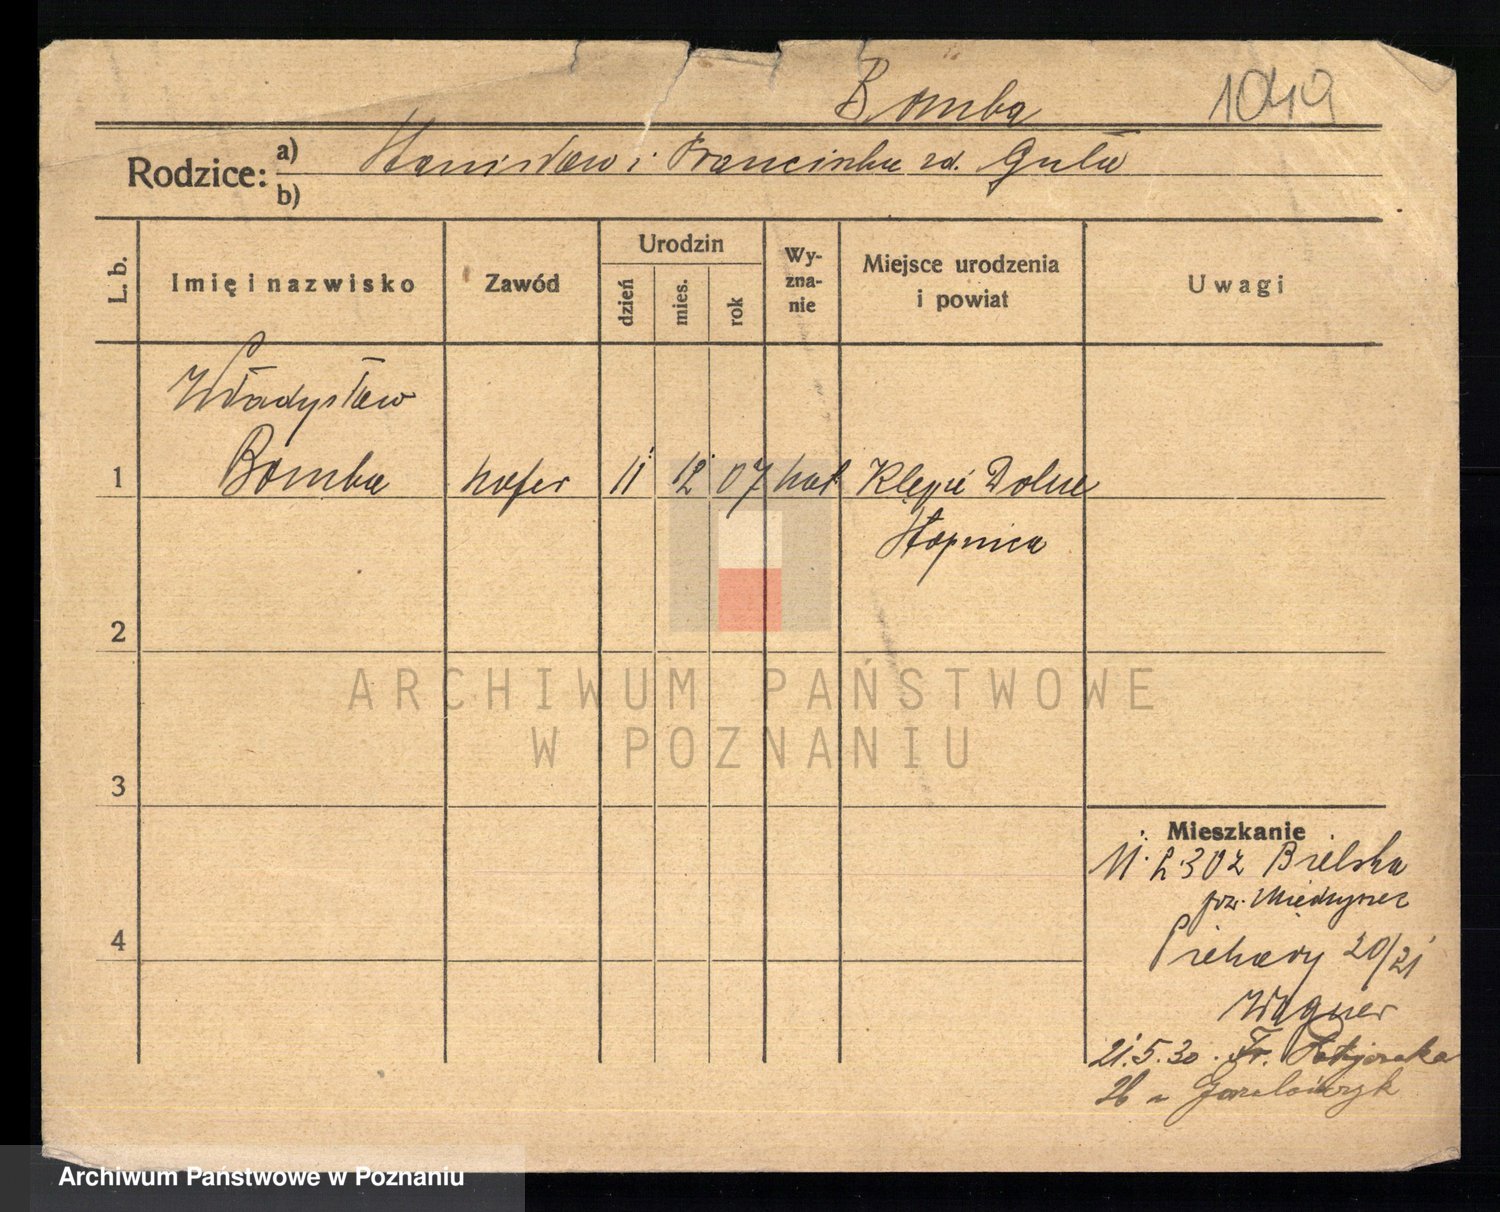 Bomba 1049
Rodzice: a) Stanisław i Franciszka zd. Guła
b)
L. b. Imię i nazwisko Zawód Urodzin dzień mies. rok Wy-zna-nie Miejsce urodzenia i powiat Uwagi
Władysław
1 Bomba 11 12 07 kat Klępie Dolne
Stopnica
2
ARCHIWUM PAŃSTWOWE
W POZNANIU
3
Mieszkanie
11. 2. 30 z Bielska
4
20/21
Wagner
21.5.30. Fr.
26
Archiwum Państwowe w Poznaniu